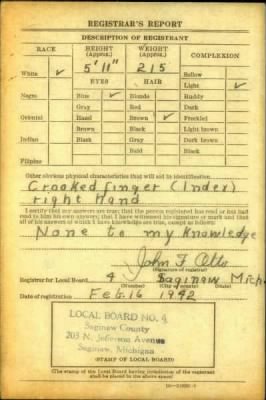 REGISTRAR'S REPORT
DESCRIPTION OF REGISTRANT
RACE HEIGHT (Approx.) WEIGHT (Approx.) COMPLEXION
White ✓ 5'11" 215 Sallow
EYES HAIR Light ✓
Negro Blue ✓ Blonde Ruddy
Gray Red Dark
Oriental Hazel Brown ✓ Freckled
Brown Black Light brown
Indian Black Gray Dark brown
Bald Black
Filipino
Other obvious physical characteristics that will aid in identification
Crooked finger (Index)
right Hand
I certify that my answers are true; that the person registered has read or has had
read to him his own answers; that I have witnessed his signature or mark and that
all of his answers of which I have knowledge are true, except as follows:
None to my Knowledge
John F
(Signature of registrar)
Registrar for Local Board 4 Saginaw Mich.
(Number) (City or county) (State)
Date of registration Feb. 16 1942
LOCAL BOARD NO. 4
Saginaw County
203 N. Jefferson Avenue
Saginaw, Michigan
(STAMP OF LOCAL BOARD)
(The stamp of the Local Board having jurisdiction of the registrant
shall be placed in the above space)